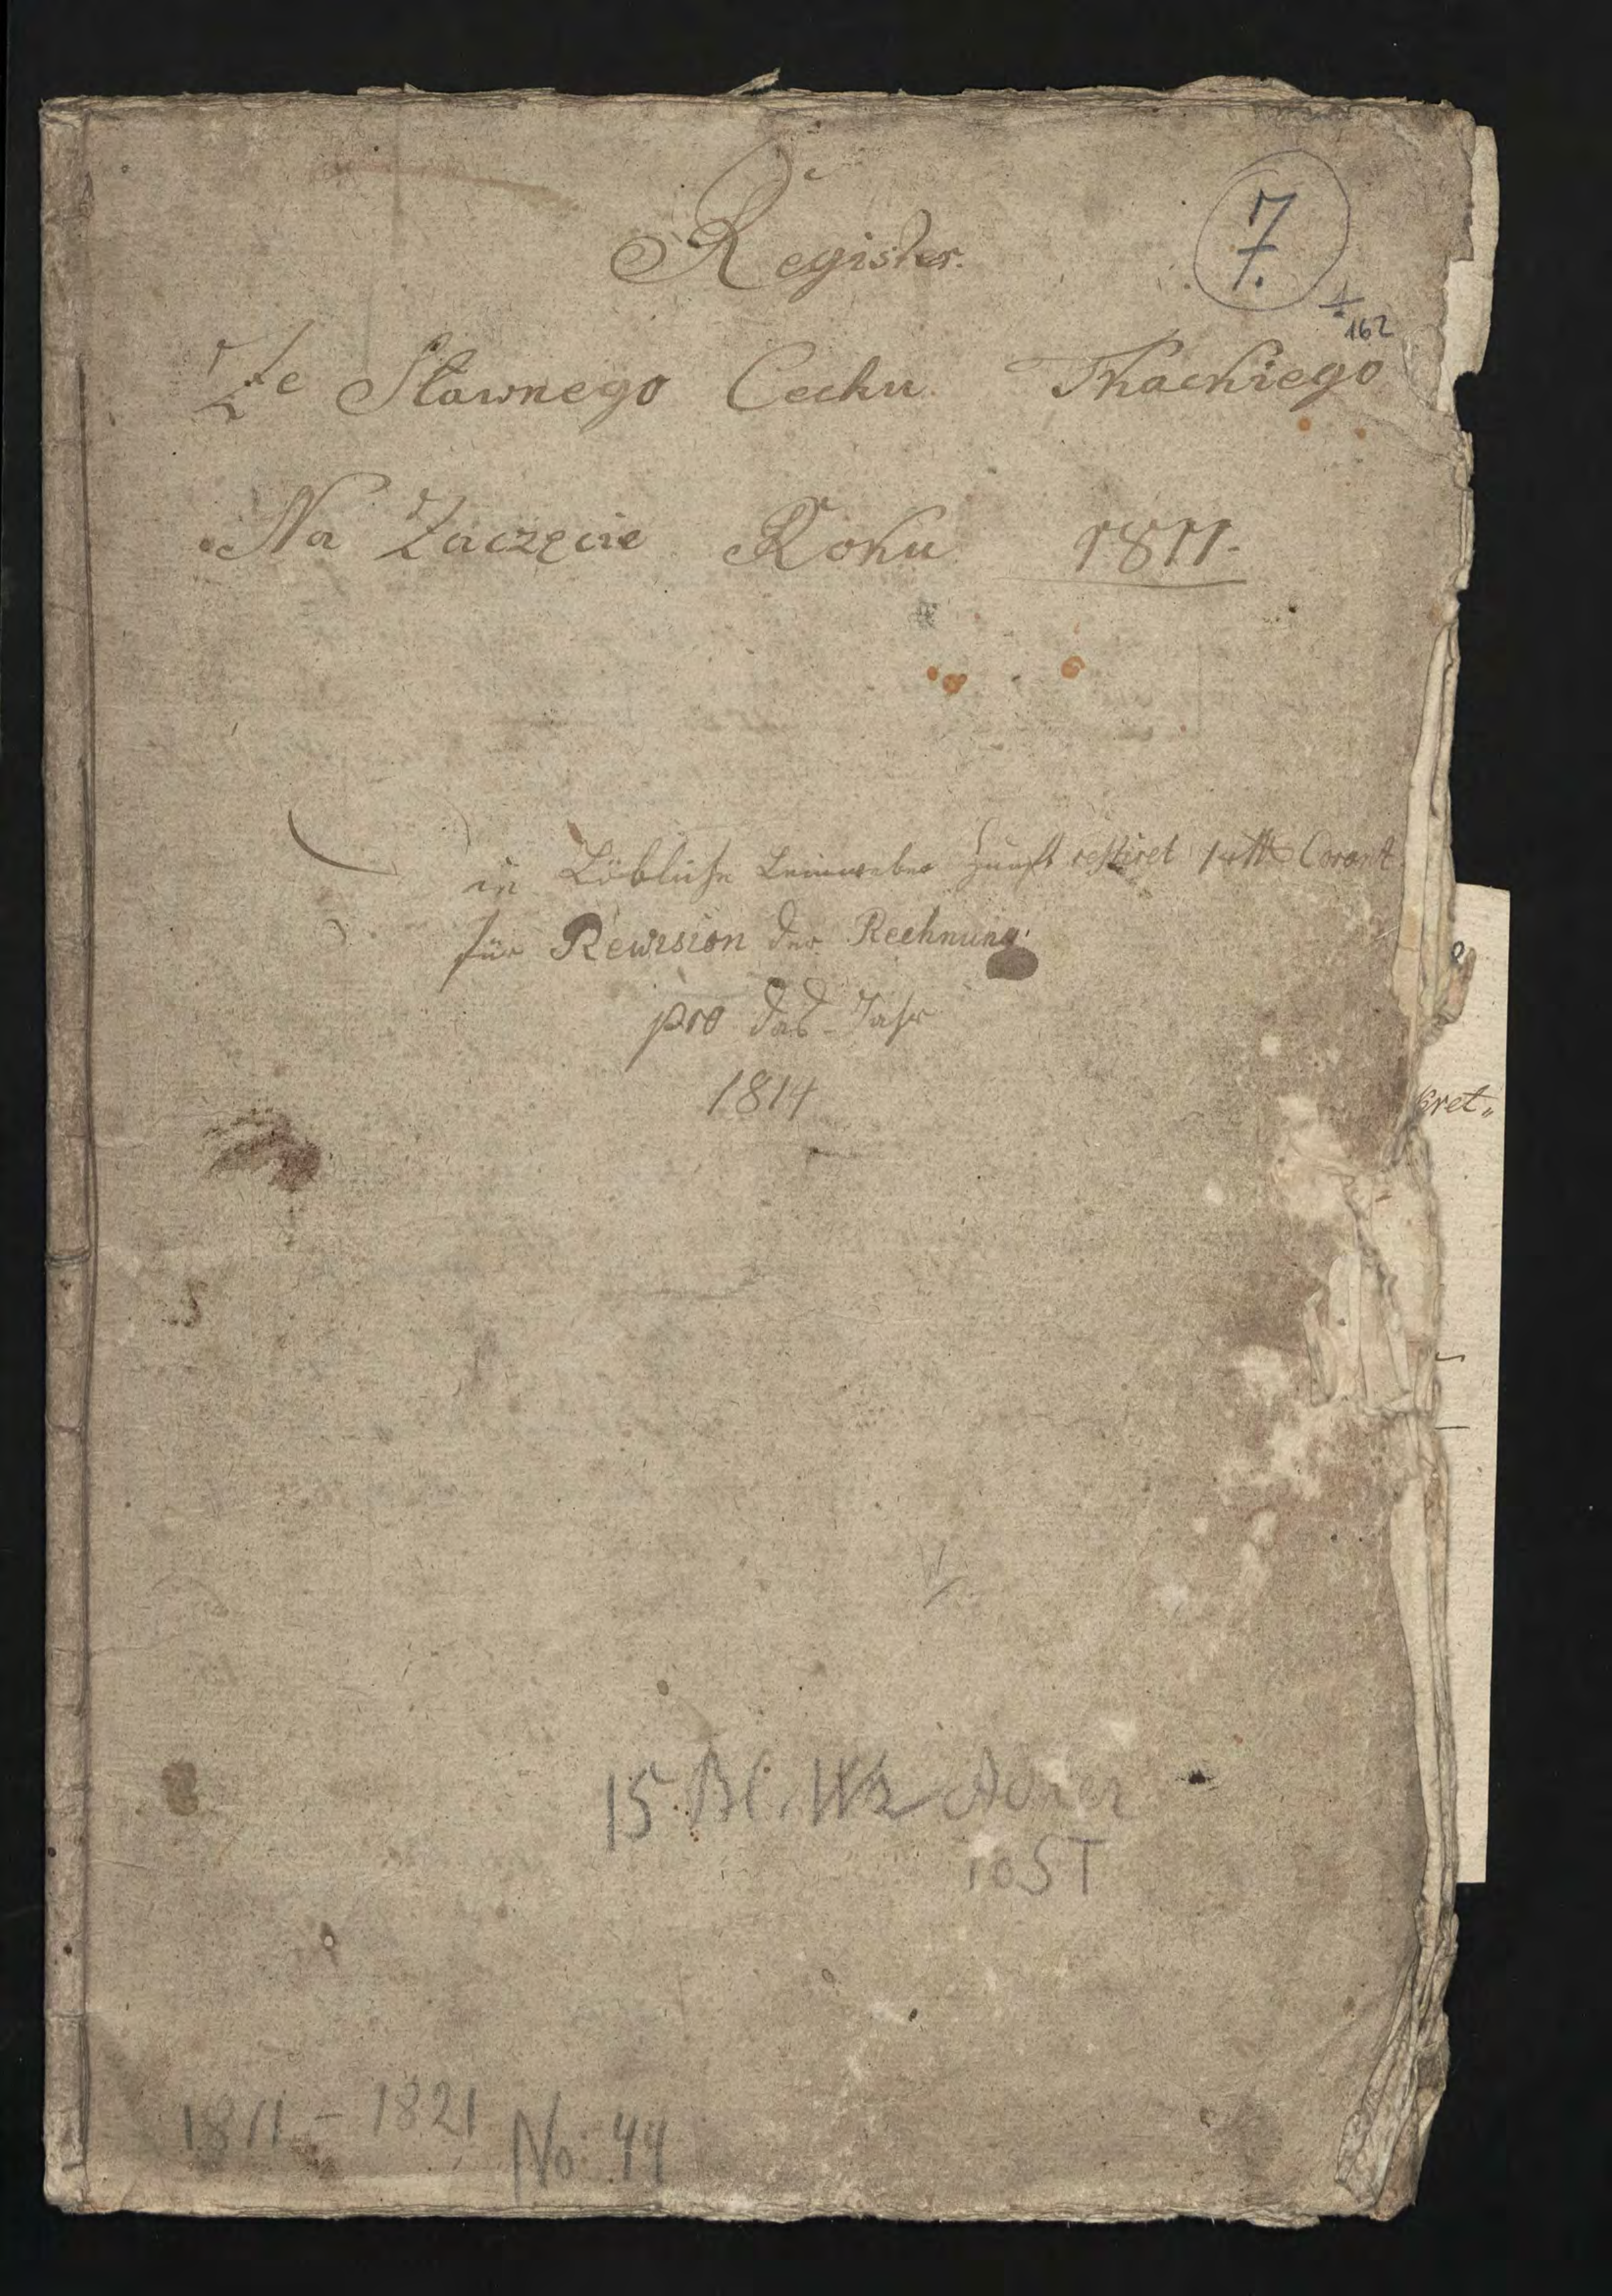 Register.
7.
162
Ze Sławnego Cechu Tkackiego
Na Zaczęcie Roku 1811.
in Löbliche Leinweber Zunft restiret Corant
für Rewision der Rechnung
pro das Jahr
1814
15 Bl. Wz Adler
10 ST
1811 - 1821 No: 44